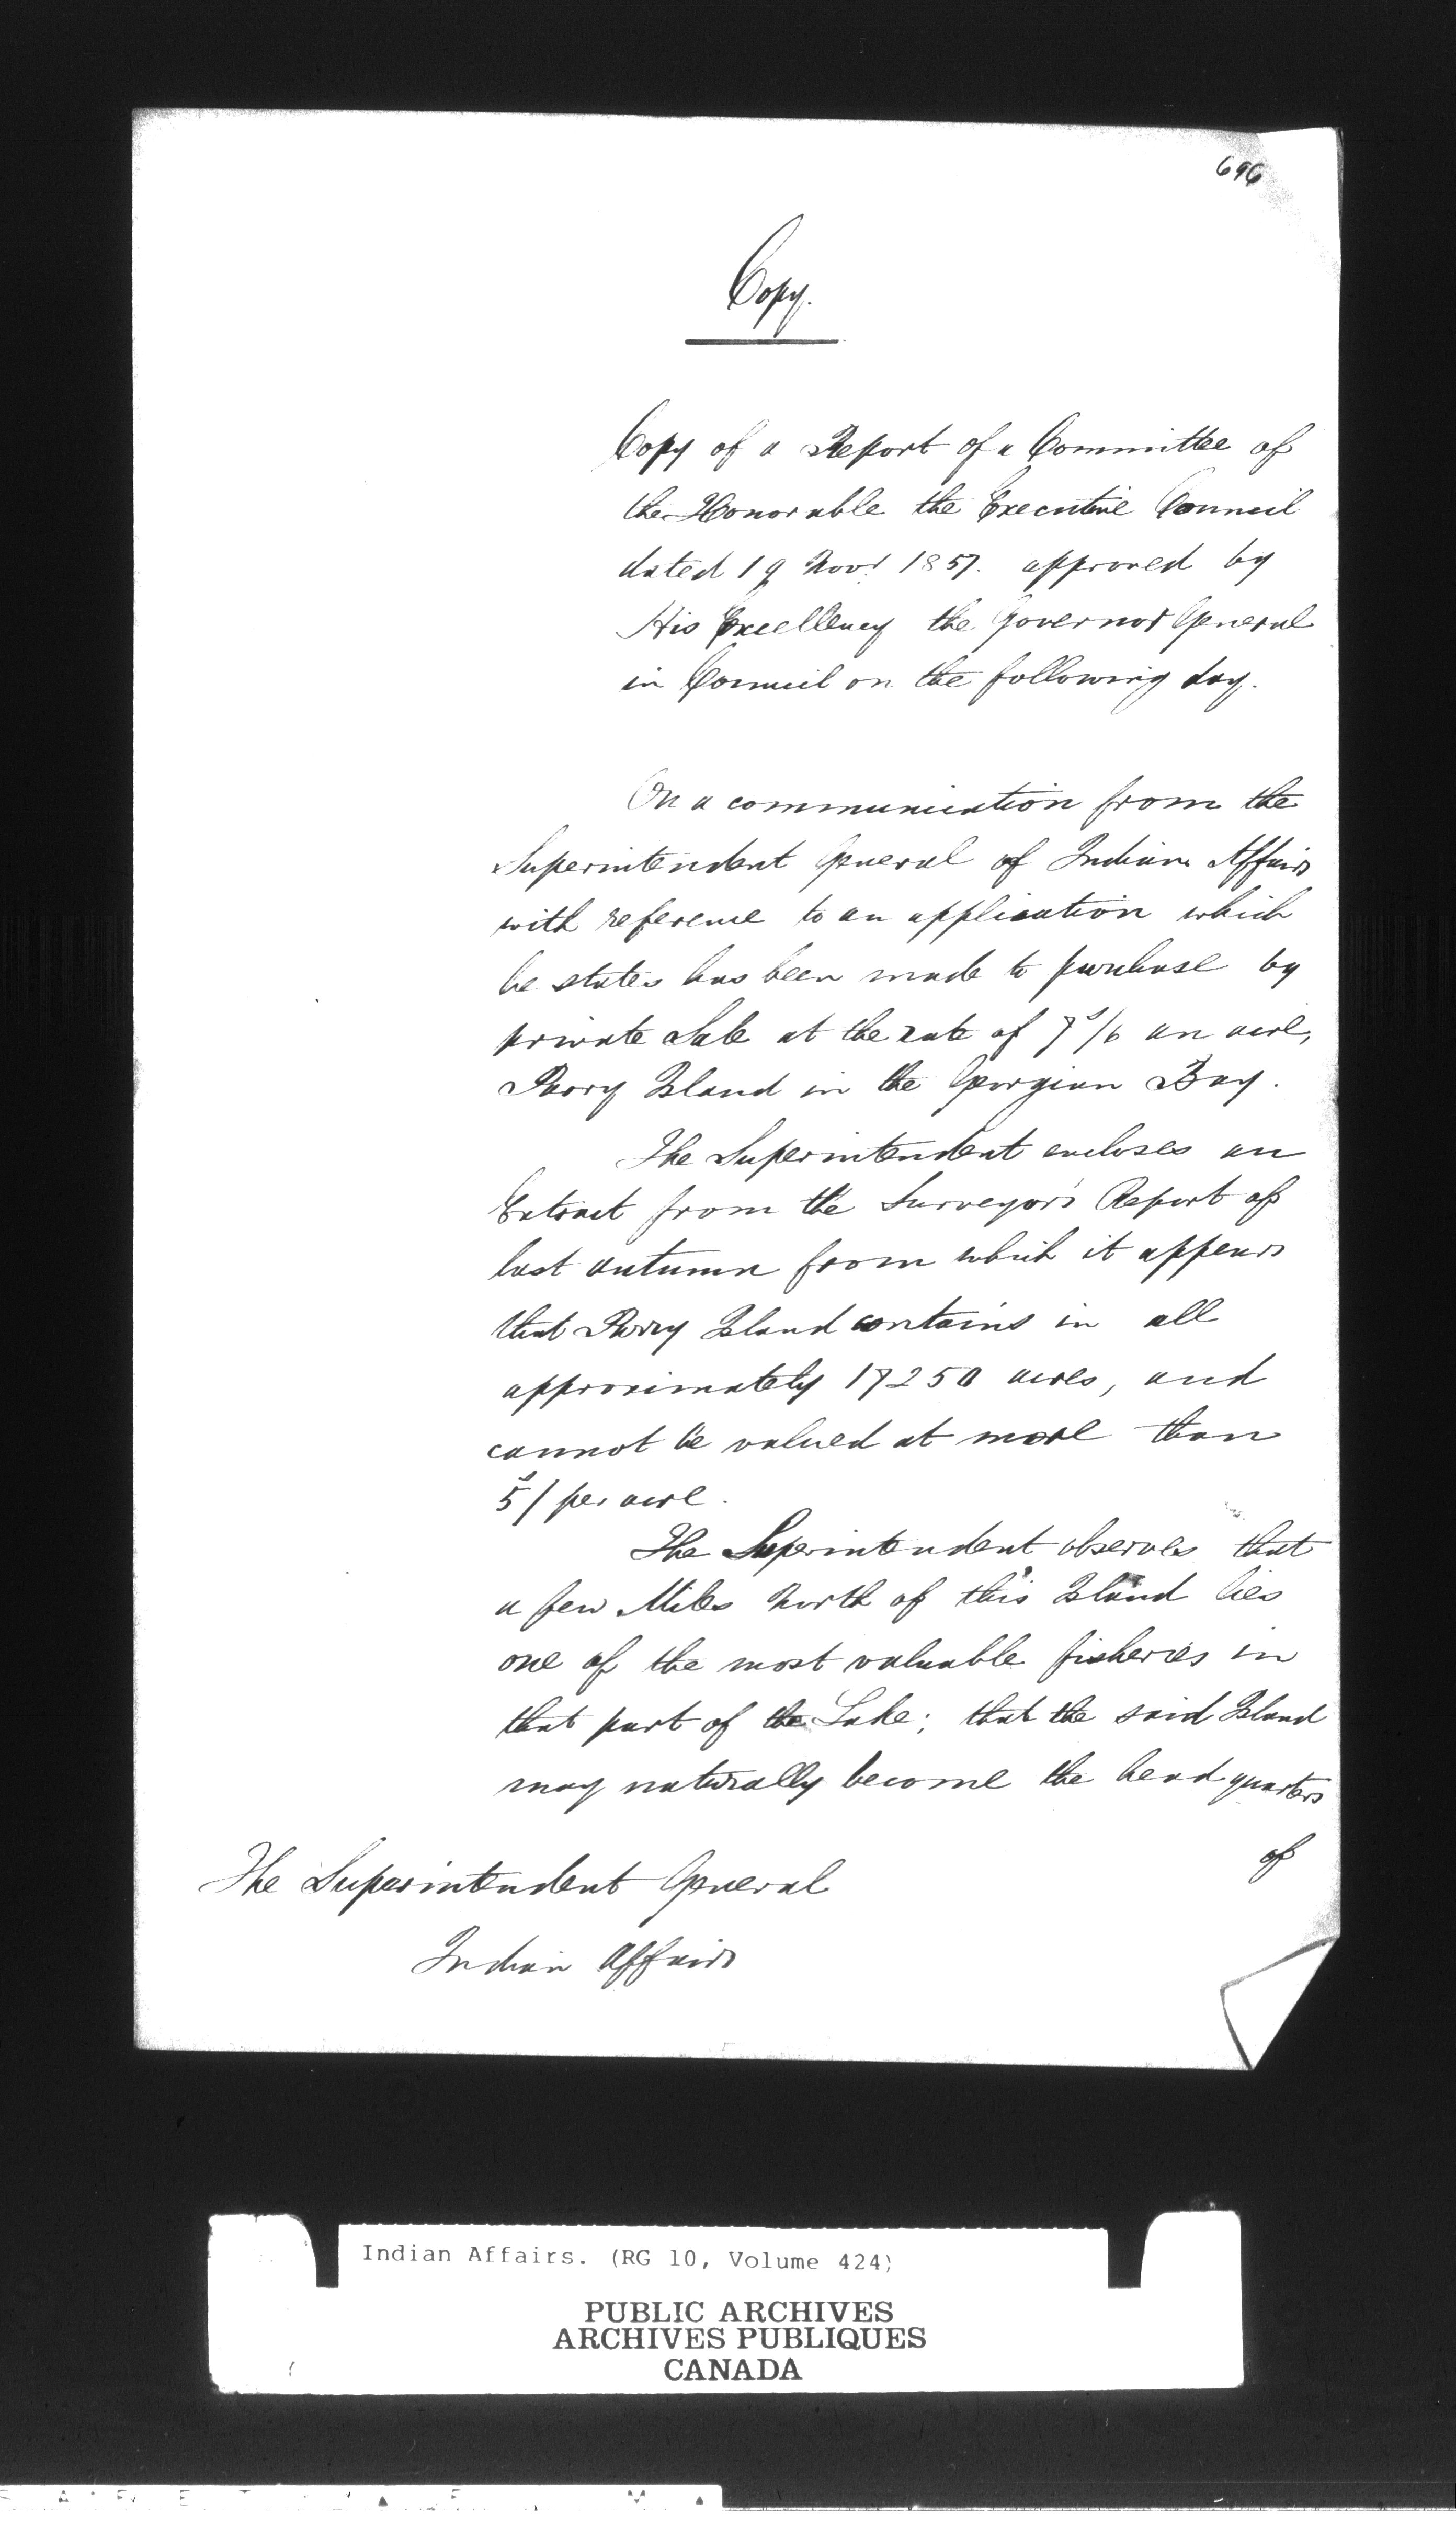 696
Copy.
Copy of a Report of a Committee of
the Honorable the Executive Council
dated 19 Novr 1857. approved by
His Excellency the Governor General
in Council on the following day.
On a communication from the
Superintendent General of Indian Affairs
with reference to an application which
he states has been made to purchase by
private Sale at the rate of 7s/6 an acre,
Parry Island in the Georgian Bay.
The Superintendent encloses an
Extract from the Surveyor's Report of
last autumn from which it appears
that Parry Island contains in all
approximately 17250 acres, and
cannot be valued at more than
5s/ per acre.
The Superintendent observes that
a few Miles North of this Island lies
one of the most valuable fisheries in
that part of the Lake; that the said Island
may naturally become the head quarters
of
The Superintendent General
Indian Affairs
Indian Affairs. (RG 10, Volume 424)
PUBLIC ARCHIVES
ARCHIVES PUBLIQUES
CANADA